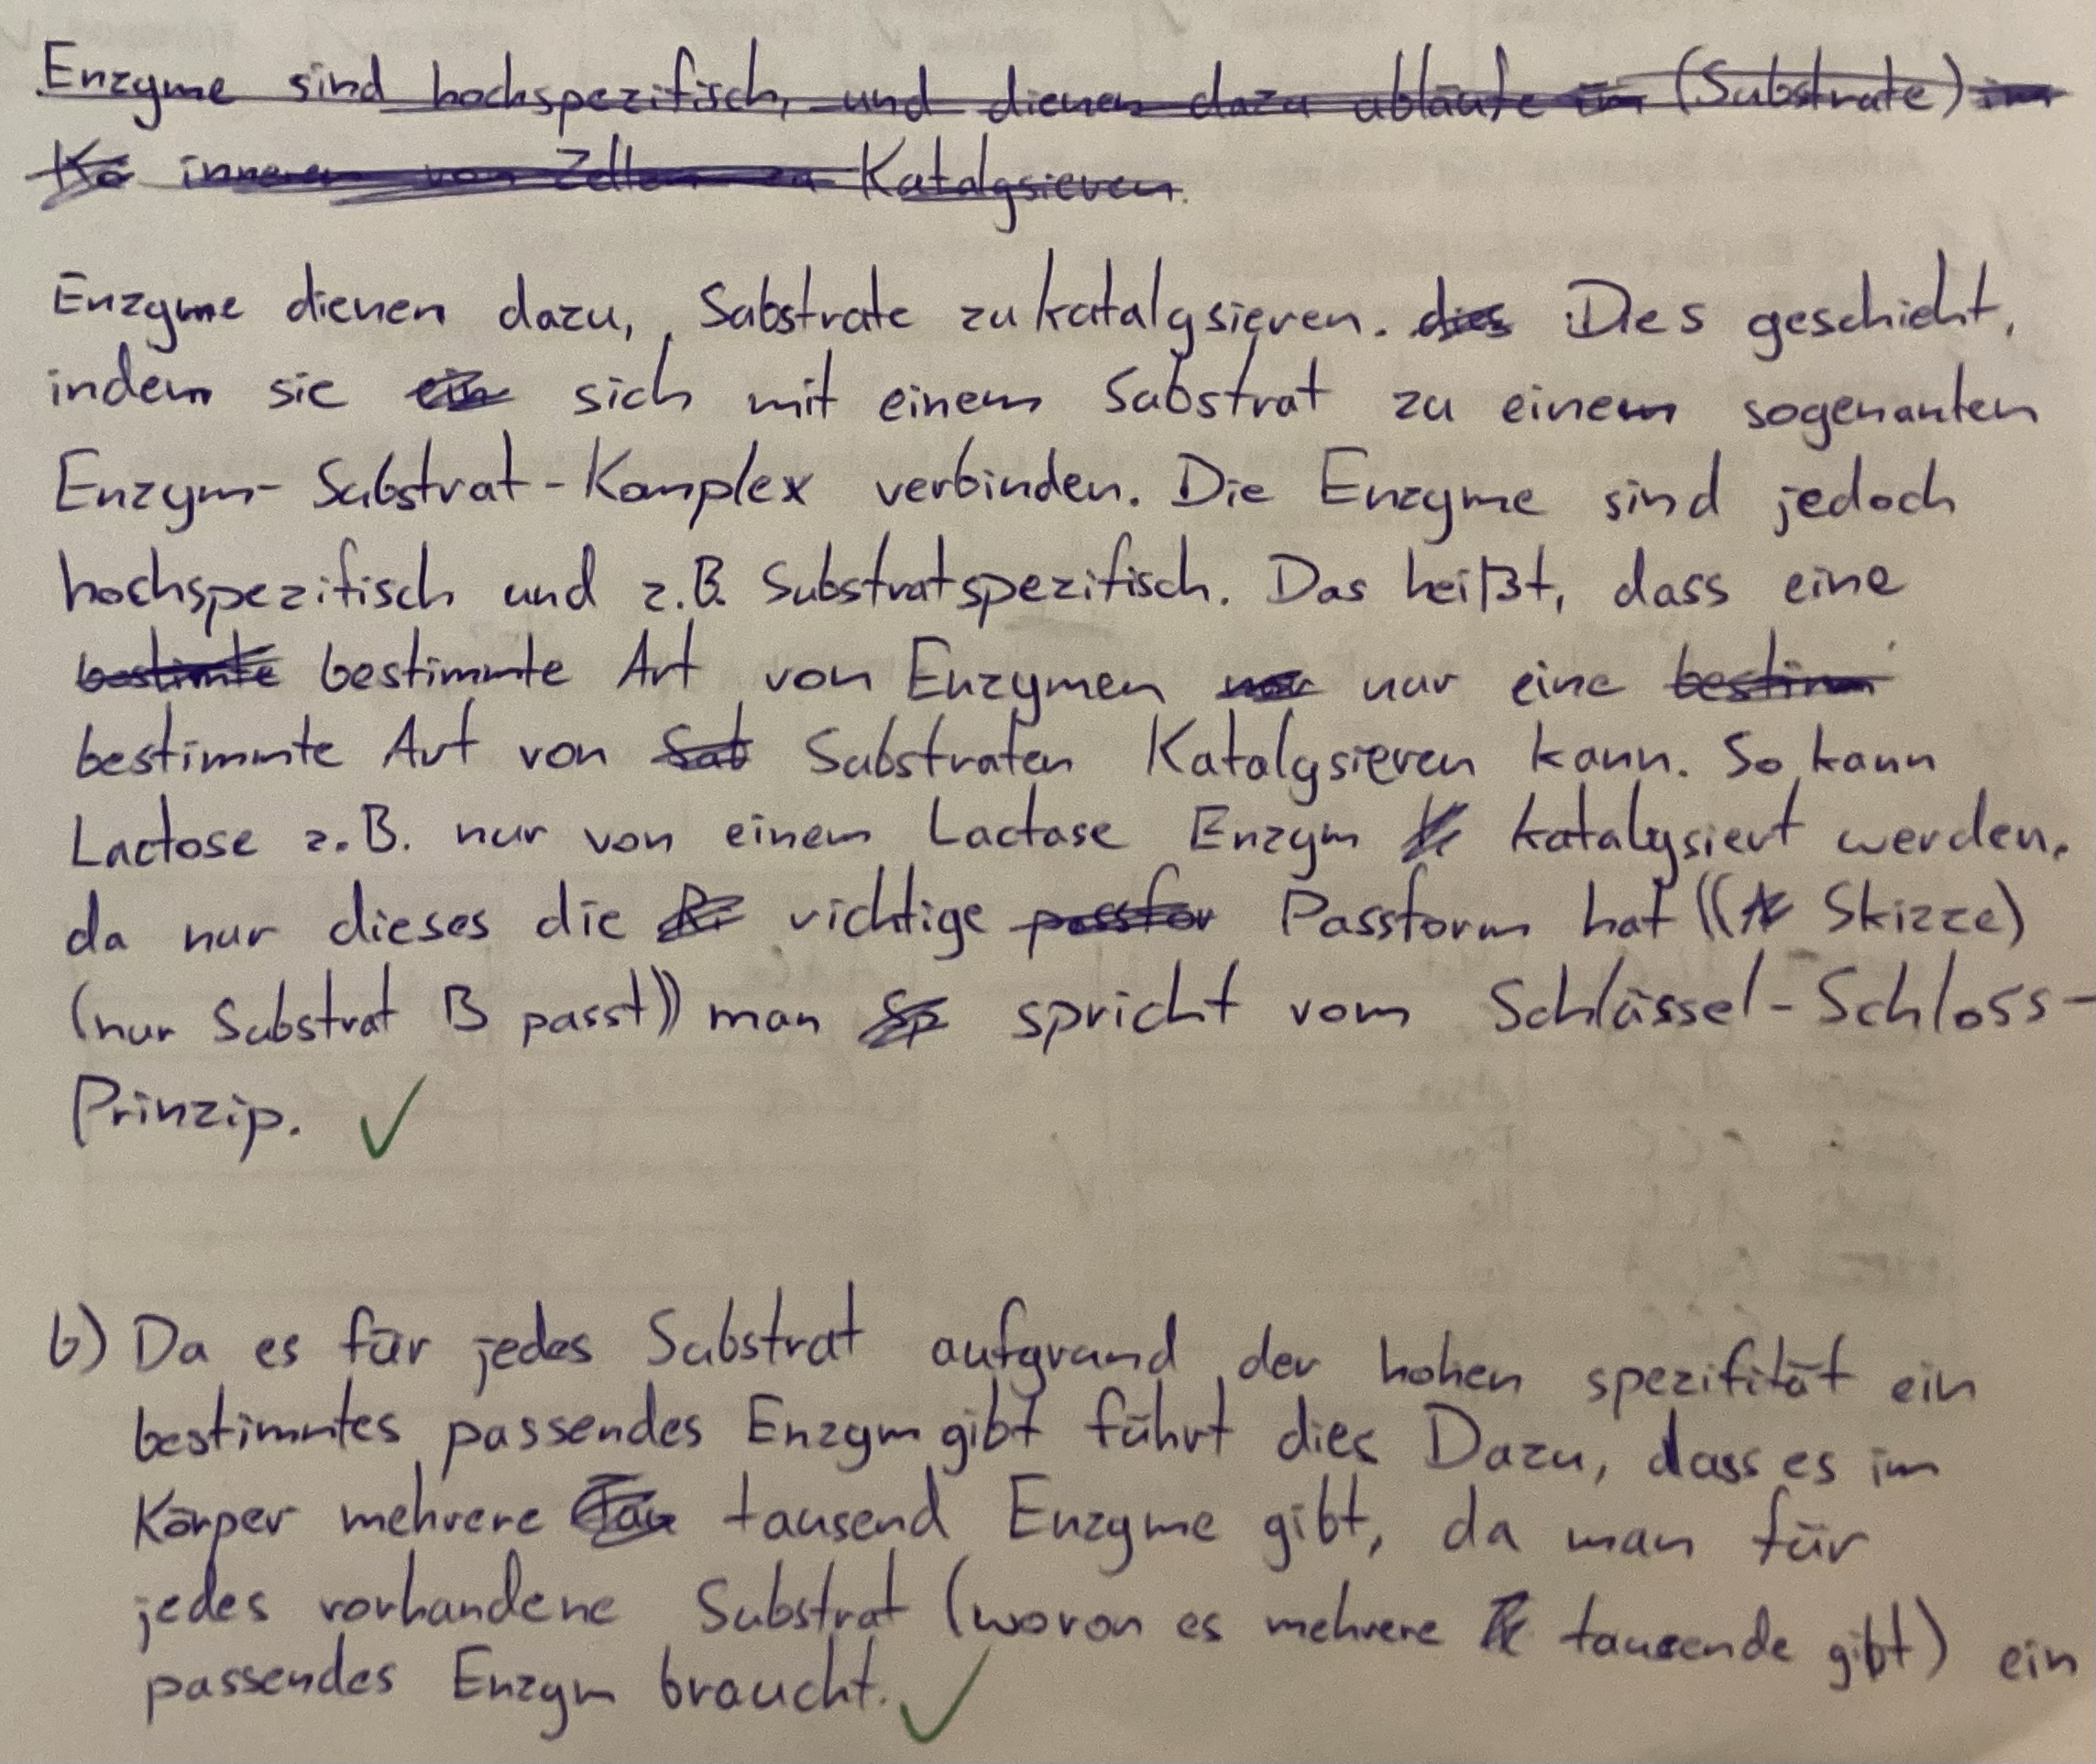 Enzyme sind hochspezifisch, und dienen dazu abläufe im (Substrate) im
Kö inneren von Zellen zu Katalysieren.
Enzyme dienen dazu, Substrate zu katalysieren. dies Dies geschieht,
indem sie ein sich mit einem Substrat zu einem sogenanten
Enzym-Substrat-Komplex verbinden. Die Enzyme sind jedoch
hochspezifisch und z.B. Substratspezifisch. Das heißt, dass eine
bestimte bestimmte Art von Enzymen nur nur eine bestimm
bestimmte Art von Sub Substraten Katalysieren kann. So kann
Lactose z.B. nur von einem Lactase Enzym k katalysiert werden.
da nur dieses die Ri richtige passfor Passform hat ((Skizze)
(nur Substrat B passt)) man Sp spricht vom Schlüssel-Schloss-
Prinzip. ✓
b) Da es für jedes Substrat aufgrund der hohen spezifität ein
bestimmtes passendes Enzym gibt führt dies Dazu, dass es im
Körper mehrere Tau tausend Enzyme gibt, da man für
jedes vorhandene Substrat (wovon es mehrere T tausende gibt) ein
passendes Enzym braucht. ✓